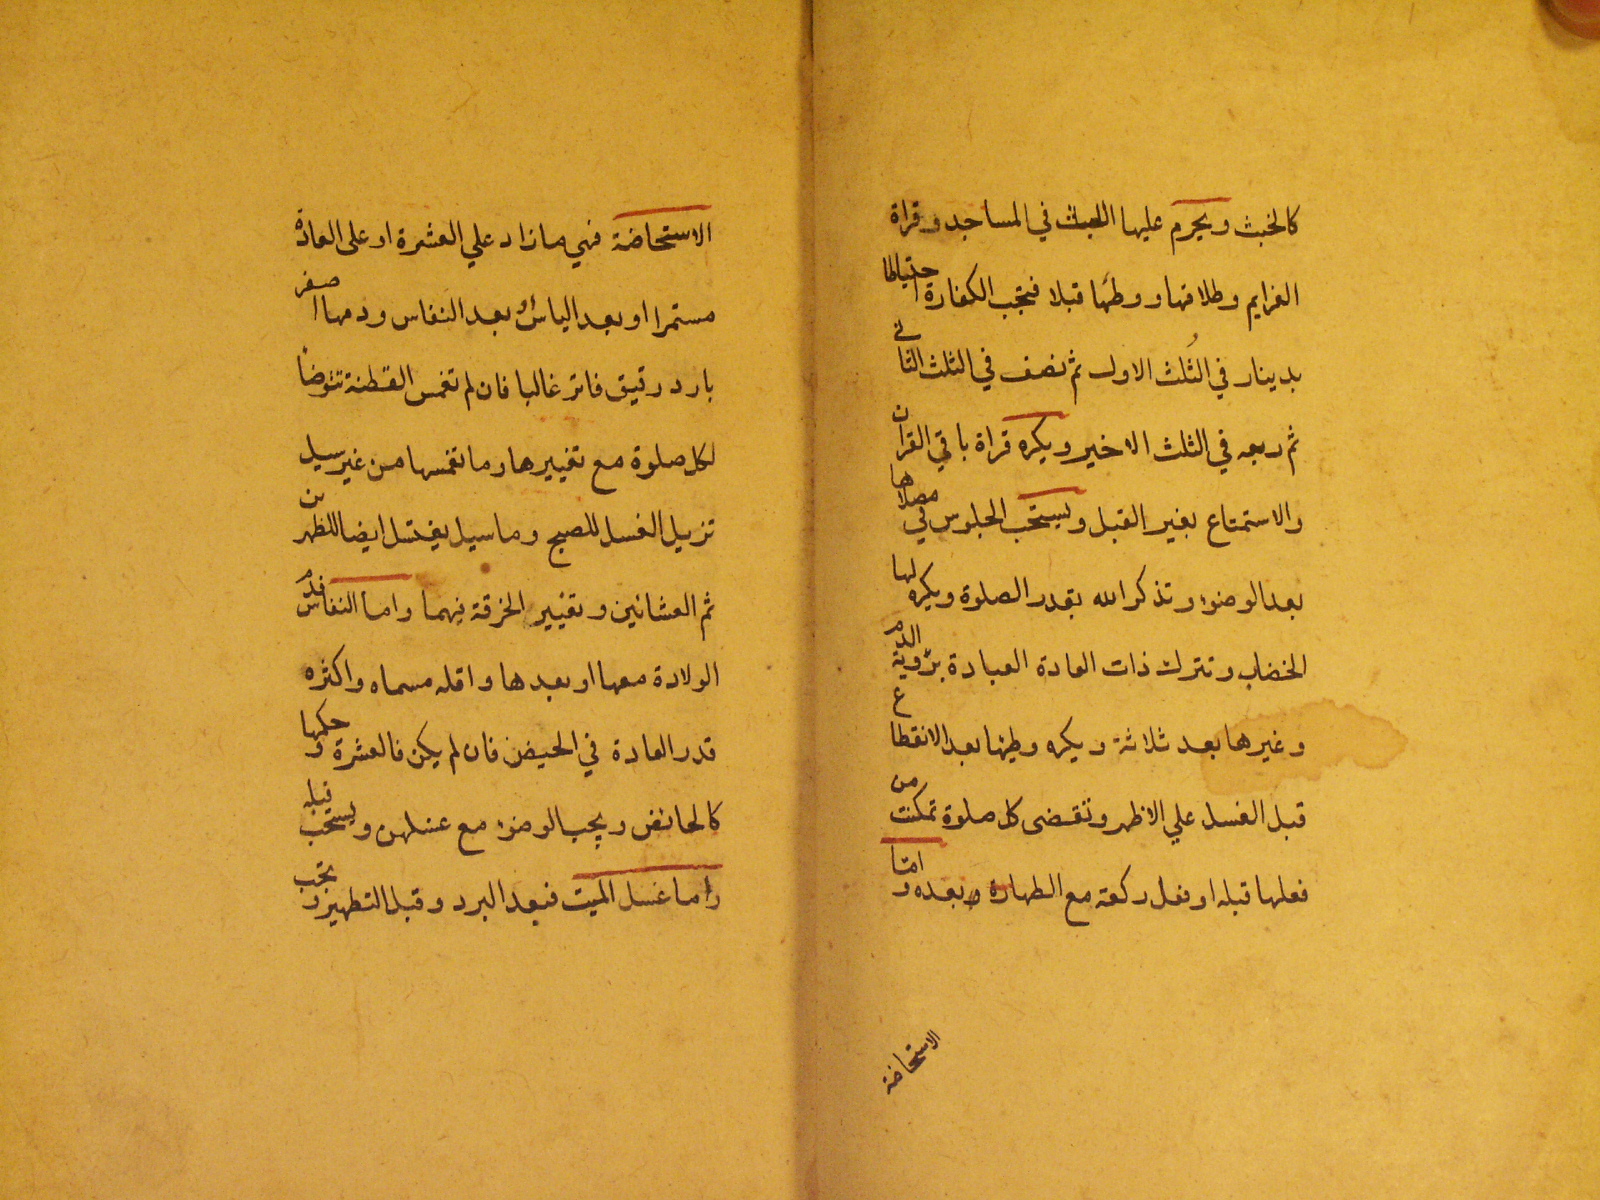 كالخبث ويحرم عليها اللبث في المساجد وقراة
العزايم وطلاقها ووطئها قبلا فتجب الكفارة احتياطا
بدينار في الثُلث الاول ثم نصف في الثلث الثاني
ثم ربعه في الثلث الاخير ويكره قراة باقي القران
والاستمتاع بغير القبل ويستحب الجلوس في مصلاها
بعد الوضوء وتذكر الله بقدر الصلوة ويكره لها
الخضاب وتترك ذات العادة العبادة برؤية الدم
وغيرها بعد ثلاثة ويكره وطيها بعد الانقطاع
قبل الغسل علي الاظهر وتقضى كل صلوة تمكنت من
فعلها قبله او فعل ركعة مع الطهارة بعده واما
الاستحاضة
الاستحاضة فهي ما زاد علي العشرة او على العادة
مستمرا او بعد الياس او بعد النفاس ودمها اصفر
بارد رقيق فاتر غالبا فان لم تغمس القطنة تتوضا
لكل صلوة مع تغييرها وما تغمسها من غير سيل
تزيد الغسل للصبح وما سيل يغتسل ايضا للظهرين
ثم العشائين وتغيير الخرقة فيهما واما النفاس فدم
الولادة معها او بعدها واقله مسماه واكثره
قدر العادة في الحيض فان لم يكن فالعشرة وحكمها
كالحائض ويجب الوضوء مع غسلهن ويستحب قبله
واما غسل الميت فبعد البرد وقبل التطهير ويجب